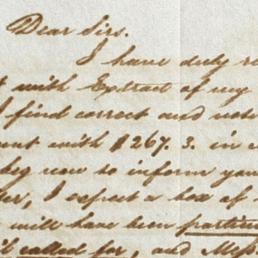 Dear Sirs.
I have duly re
t with Extract of my
I find correct and note
unt with $267.3. in
beg now to inform you
er, I expect a box of
will have been
called for, and Mess